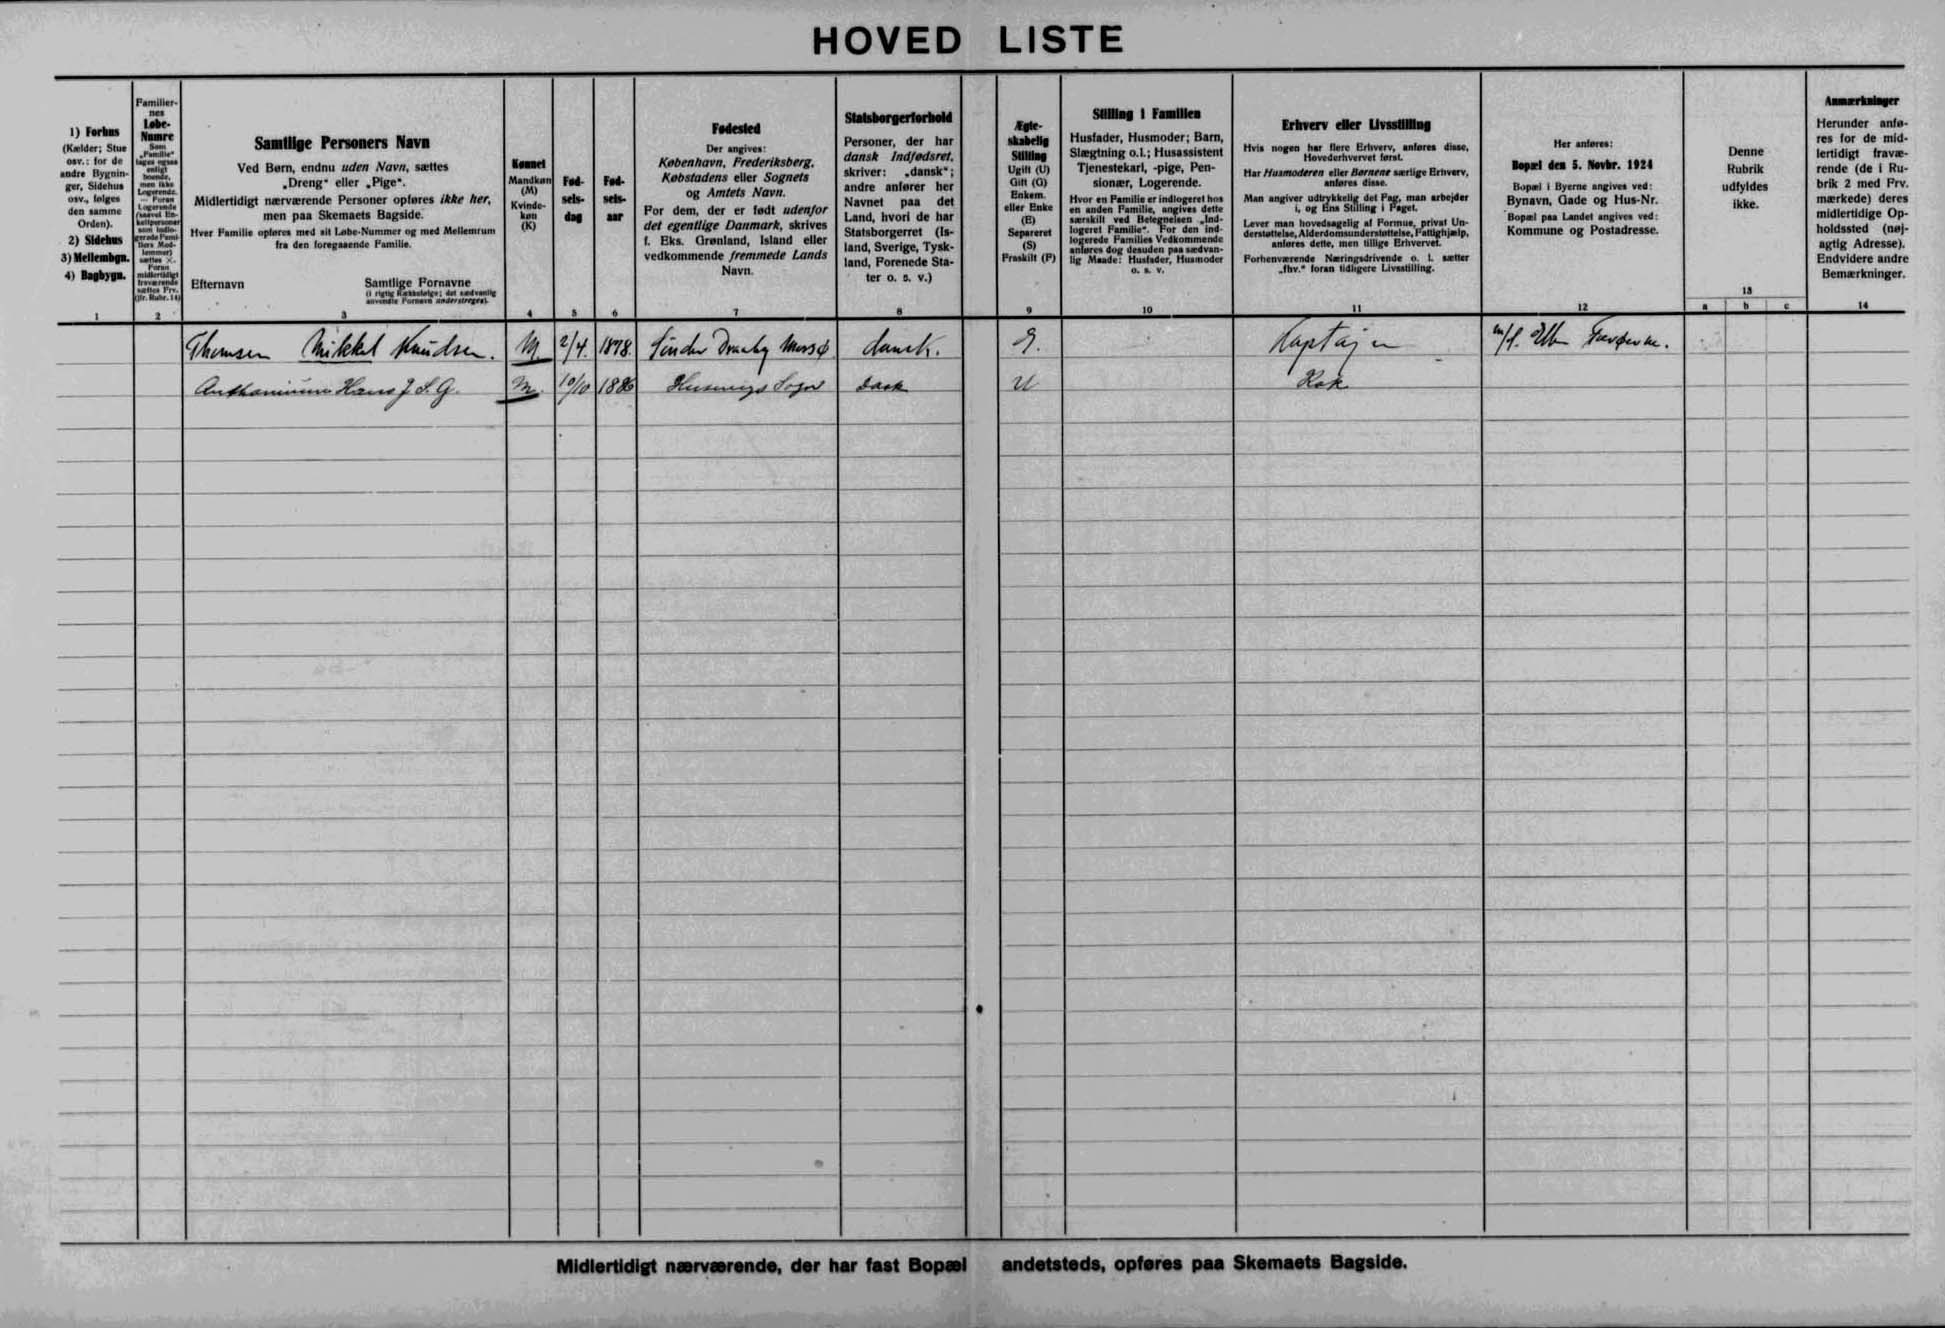 HOVED LISTE
1) Forhus
(Kælder; Stue
osv.: for de
andre Bygnin-
ger, Sidehus
osv., følges
den samme
Orden).
2) Sidehus
3) Mellembgn.
4) Bagbygn.
1
Familier-
nes
Løbe-
Numre
Som
„Familie“
tages ogsaa
enligt
boende,
men ikke
Logerende.
— Foran
Logerende
(saavel En-
keltpersoner
som indlo-
gerede Fami-
liers Med-
lemmer)
sættes ×.
Foran
midlertidigt
fraværende
sættes Frv.
(jfr. Rubr. 14)
2
Samtlige Personers Navn
Ved Børn, endnu uden Navn, sættes
„Dreng“ eller „Pige“.
Midlertidigt nærværende Personer opføres ikke her,
men paa Skemaets Bagside.
Hver Familie opføres med sit Løbe-Nummer og med Mellemrum
fra den foregaaende Familie.
Efternavn Samtlige Fornavne
(i rigtig Rækkefølge; det sædvanlig
anvendte Fornavn understreges).
3
Kønnet
Mandkøn
(M)
Kvinde-
køn
(K)
4
Fød-
sels-
dag
5
Fød-
sels-
aar
6
Fødested
Der angives:
København, Frederiksberg,
Købstadens eller Sognets
og Amtets Navn.
For dem, der er født udenfor
det egentlige Danmark, skrives
f. Eks. Grønland, Island eller
vedkommende fremmede Lands
Navn.
7
Statsborgerforhold
Personer, der har
dansk Indfødsret,
skriver: „dansk“;
andre anfører her
Navnet paa det
Land, hvori de har
Statsborgerret (Is-
land, Sverige, Tysk-
land, Forenede Sta-
ter o. s. v.)
8
Ægte-
skabelig
Stilling
Ugift (U)
Gift (G)
Enkem.
eller Enke
(E)
Separeret
(S)
Fraskilt (F)
9
Stilling i Familien
Husfader, Husmoder; Barn,
Slægtning o.l.; Husassistent
Tjenestekarl, -pige, Pen-
sionær, Logerende.
Hvor en Familie er indlogeret hos
en anden Familie, angives dette
særskilt ved Betegnelsen „Ind-
logeret Familie“. For den ind-
logerede Families Vedkommende
anføres dog desuden paa sædvan-
lig Maade: Husfader, Husmoder
o. s. v.
10
Erhverv eller Livsstilling
Hvis nogen har flere Erhverv, anføres disse,
Hovederhvervet først.
Har Husmoderen eller Børnene særlige Erhverv,
anføres disse.
Man angiver udtrykkelig det Fag, man arbejder
i, og Ens Stilling i Faget.
Lever man hovedsagelig af Formue, privat Un-
derstøttelse, Alderdomsunderstøttelse, Fattighjælp,
anføres dette, men tillige Erhvervet.
Forhenværende Næringsdrivende o. l. sætter
„fhv.“ foran tidligere Livsstilling.
11
Her anføres:
Bopæl den 5. Novbr. 1924
Bopæl i Byerne angives ved:
Bynavn, Gade og Hus-Nr.
Bopæl paa Landet angives ved:
Kommune og Postadresse.
12
Denne
Rubrik
udfyldes
ikke.
13
a b c
Anmærkninger
Herunder anfø-
res for de mid-
lertidigt fravæ-
rende (de i Ru-
brik 2 med Frv.
mærkede) deres
midlertidige Op-
holdssted (nøj-
agtig Adresse).
Endvidere andre
Bemærkninger.
14
Thomsen Mikkel Knudsen. M. 2/4. 1878. Sønder Draaby Morsø dansk. G. Kaptajn
Hans J S. G. M. 10/10 1886 Sogn Dask U Kok
Midlertidigt nærværende, der har fast Bopæl andetsteds, opføres paa Skemaets Bagside.